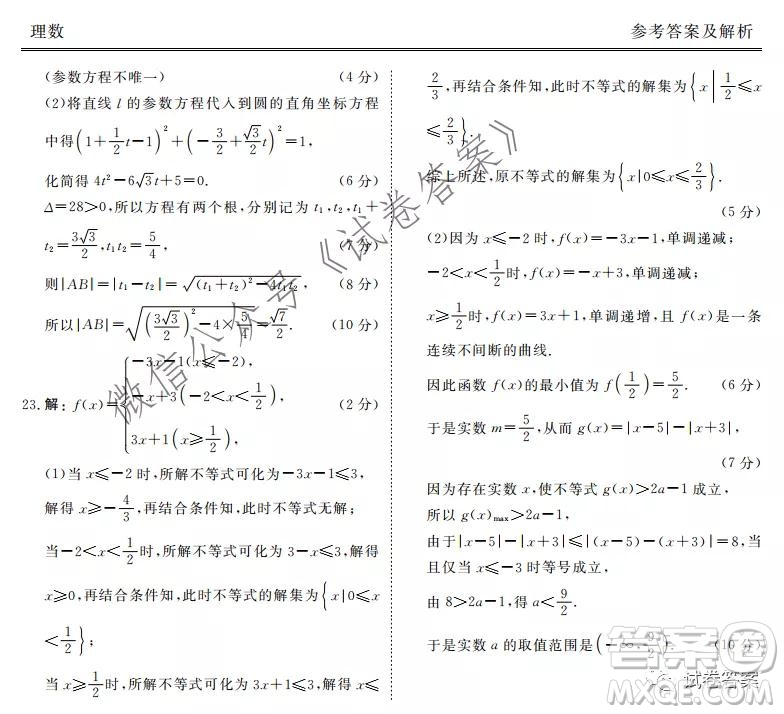 理数
参考答案及解析
(参数方程不唯一) (4 分)
(2)将直线 l 的参数方程代入到圆的直角坐标方程
中得(1+1/2t−1)²+(−3/2+√3/2t)²=1,
化简得 4t²−6√3t+5=0. (6 分)
Δ=28>0,所以方程有两个根,分别记为 t₁,t₂,t₁+
t₂=3√3/2,t₁t₂=5/4, (7 分)
则|AB|=|t₁−t₂|=√((t₁+t₂)²−4t₁t₂), (8 分)
所以|AB|=√((3√3/2)²−4×5/4)=√7/2. (10 分)
23.解:f(x)={−3x−1(x≤−2),
−x+3(−2<x<1/2), (2 分)
3x+1(x≥1/2),
(1)当 x≤−2 时,所解不等式可化为−3x−1≤3,
解得 x≥−4/3,再结合条件知,此时不等式无解;
当−2<x<1/2时,所解不等式可化为 3−x≤3,解得
x≥0,再结合条件知,此时不等式的解集为{x|0≤x
<1/2};
当 x≥1/2时,所解不等式可化为 3x+1≤3,解得 x≤
2/3,再结合条件知,此时不等式的解集为{x|1/2≤x
≤2/3}.
综上所述,原不等式的解集为{x|0≤x≤2/3}.
(5 分)
(2)因为 x≤−2 时,f(x)=−3x−1,单调递减;
−2<x<1/2时,f(x)=−x+3,单调递减;
x≥1/2时,f(x)=3x+1,单调递增,且 f(x)是一条
连续不间断的曲线.
因此函数 f(x)的最小值为 f(1/2)=5/2. (6 分)
于是实数 m=5/2,从而 g(x)=|x−5|−|x+3|,
(7 分)
因为存在实数 x,使不等式 g(x)>2a−1 成立,
所以 g(x)max>2a−1,
由于|x−5|−|x+3|≤|(x−5)−(x+3)|=8,当
且仅当 x≤−3 时等号成立,
由 8>2a−1,得 a<9/2.
于是实数 a 的取值范围是(−∞,9/2). (10 分)
微信公众号《试卷答案》
答案圈
MXQE.COM
试卷答案